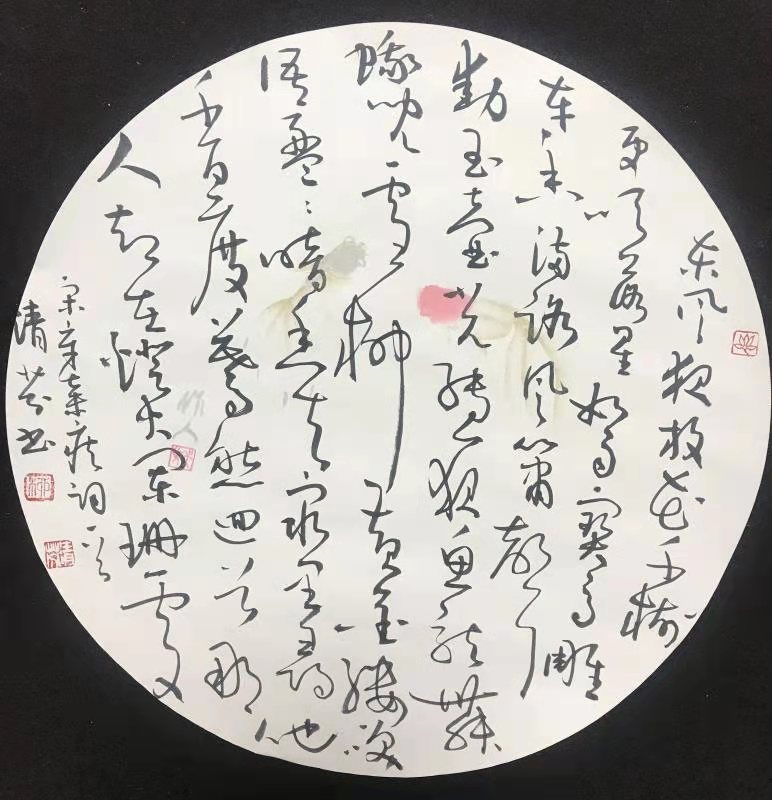 东风夜放花千树
更吹落星如雨寳馬雕
车香满路凤箫声
動玉壶光转一夜鱼龙舞
蛾儿雪柳黄金缕笑
语盈〻暗香去众里寻他
千百度蓦然回首那
人却在燈火阑珊处
宋辛棄疾词一首
清芬书